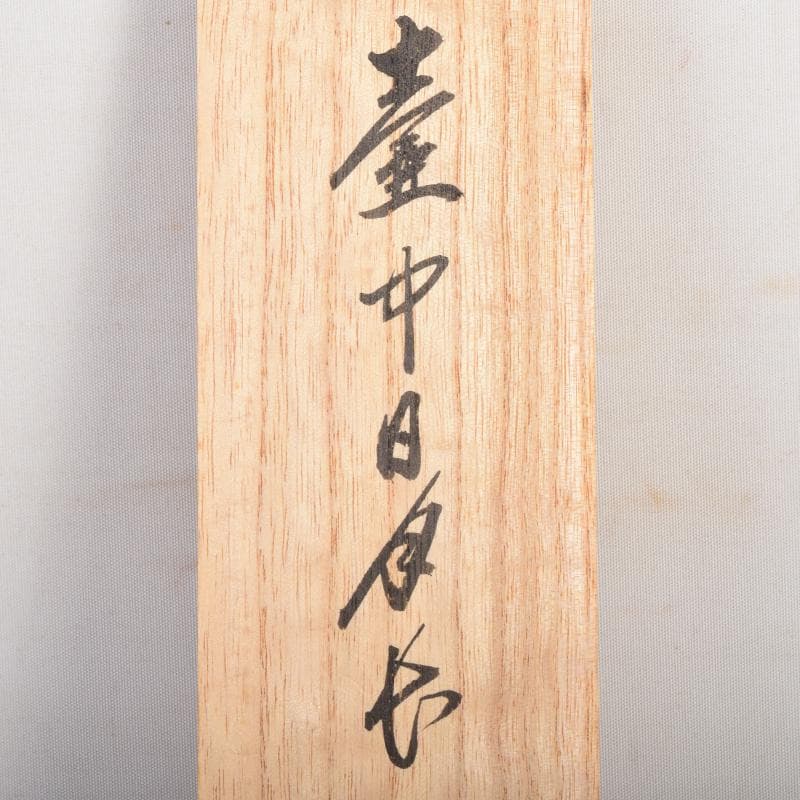 壺中日月長